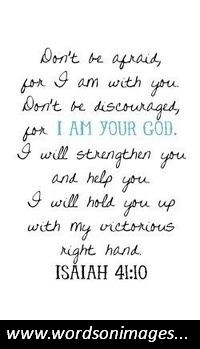 Don't be afraid,
for I am with you.
Don't be discouraged,
for I AM YOUR GOD.
I will strengthen you
and help you.
I will hold you up
with my victorious
right hand.
ISAIAH 41:10
www.wordsonimages...